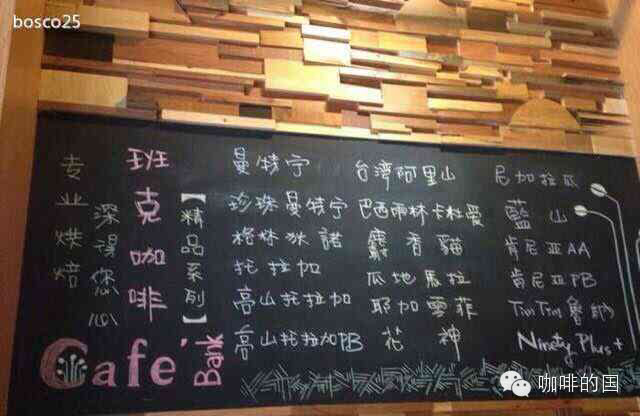 bosco25
专业烘焙
深得您心
班克咖啡
【精品系列】
曼特宁
珍珠曼特宁
托拉加
高山托拉加
高山托拉加PB
台湾阿里山
巴西雨林卡杜爱
麝香貓
瓜地馬拉
耶加雪菲
花神
尼加拉瓜
藍山
肯尼亚AA
肯尼亚PB
TimTim
Ninety Plus+
Cafe' Bank
咖啡的国